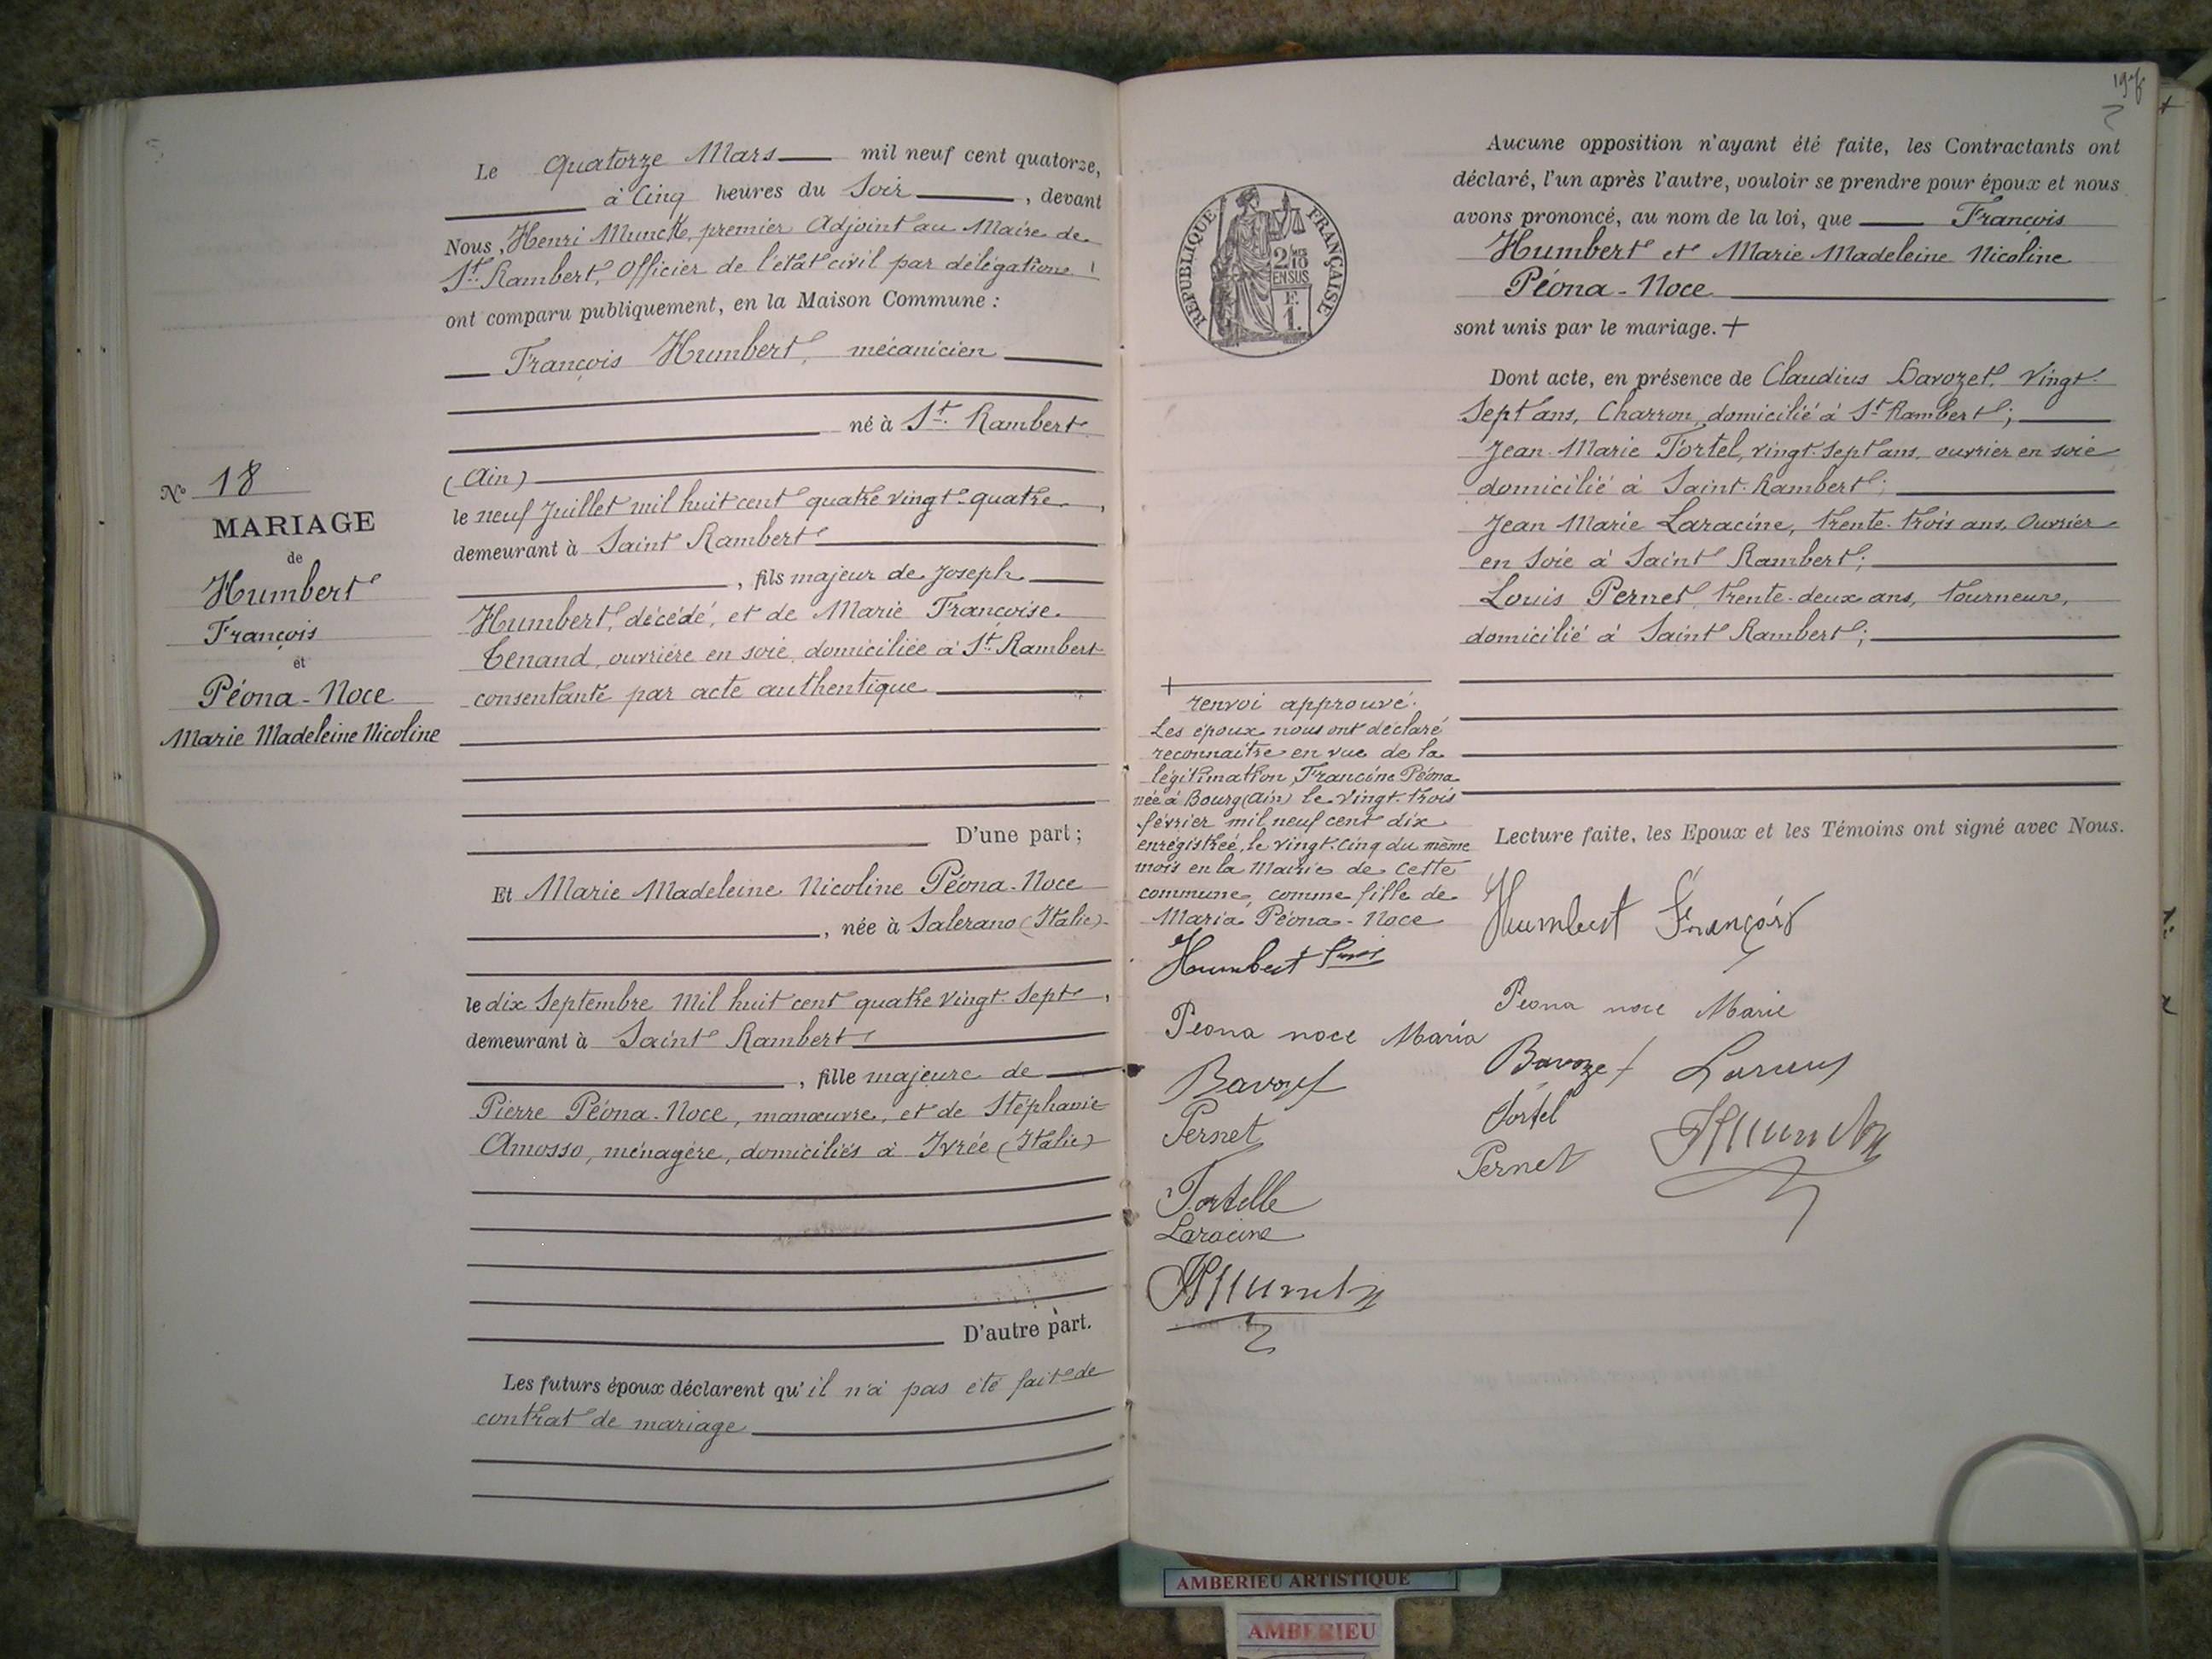 Le Quatorze Mars mil neuf cent quatorze,
à Cinq heures du Soir, devant
Nous, Henri Munck, premier Adjoint au Maire de
St. Rambert, Officier de l'état civil par délégation
ont comparu publiquement, en la Maison Commune :
François Humbert, mécanicien
né à St. Rambert
(Ain)
le neuf Juillet mil huit cent quatre vingt-quatre,
demeurant à Saint Rambert
, fils majeur de Joseph
Humbert, décédé, et de Marie Françoise
Tenand, ouvrière en soie, domiciliée à St. Rambert
consentante par acte authentique
D'une part ;
Et Marie Madeleine Nicoline Péona-Noce
, née à Salerano (Italie)
le dix Septembre Mil huit cent quatre vingt-Sept,
demeurant à Saint Rambert
, fille majeure de
Pierre Péona-Noce, manœuvre, et de Stéphanie
Amosso, ménagère, domiciliés à Ivrée (Italie)
D'autre part.
Les futurs époux déclarent qu'il n'a pas été fait de
contrat de mariage
No 18
MARIAGE
de
Humbert
François
et
Péona-Noce
Marie Madeleine Nicoline
RÉPUBLIQUE FRANÇAISE
2/10
EN SUS
F.
1.
Aucune opposition n'ayant été faite, les Contractants ont
déclaré, l'un après l'autre, vouloir se prendre pour époux et nous
avons prononcé, au nom de la loi, que François
Humbert et Marie Madeleine Nicoline
Péona-Noce
sont unis par le mariage. +
Dont acte, en présence de Claudius Bavozet, Vingt-
Sept ans, Charron, domicilié à St Rambert ;
Jean-Marie Tortel, vingt-sept ans, ouvrier en soie
domicilié à Saint-Rambert ;
Jean Marie Laracine, trente-trois ans, Ouvrier
en Soie à Saint Rambert ;
Louis Pernet, trente-deux ans, tourneur,
domicilié à Saint Rambert ;
Lecture faite, les Epoux et les Témoins ont signé avec Nous.
Humbert François
Peona noce Marie
Bavozet
Tortel
Pernet
+
renvoi approuvé.
Les époux nous ont déclaré
reconnaitre en vue de la
légitimation, Francine Péona
née à Bourg (Ain) le Vingt-trois
février mil neuf cent dix
enregistrée, le vingt-cinq du même
mois en la Mairie de Cette
commune, comme fille de
Maria Péona-Noce
Humbert
Peona noce Maria
Bavozet
Pernet
Tortelle
Laracine
AMBERIEU ARTISTIQUE
AMBERIEU